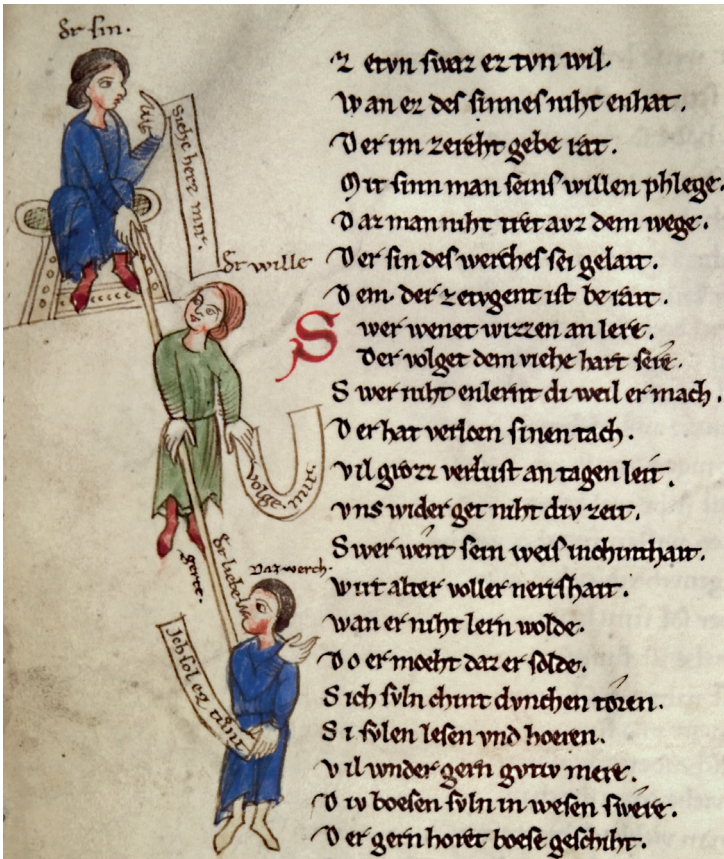 dr sin.
Siehe here mir.
dr wille
volge. mir.
dr liebe
gerte.
Daz werch.
Ich sol ez tůn
Z etvn swaz er tvn wil.
W an er des sinnes niht enhat.
D er im zereht gebe rat.
M it sinn man seins willen phlege.
D az man niht tret avz dem wege.
D er sin des werches sei gelait.
D em. der zetvgent ist berait.
S wer wenet wizzen an lere.
Der volget dem viehe hart sere.
S wer niht enlernt di weil er mach.
D er hat verloen sinen tach.
V il grozz verlust an tagen leit.
V ns wider get niht div zeit.
S wer went sein weis in chinthait.
W irt alter voller
wan er niht lern wolde.
D o er moeht daz er solde.
S ich svln chint dvnchen toren.
S i svlen lesen vnd hoeren.
V il wnder gern gvtiv mere.
D iv boesen svln in wesen swere.
D er gern horet boese geschiht.